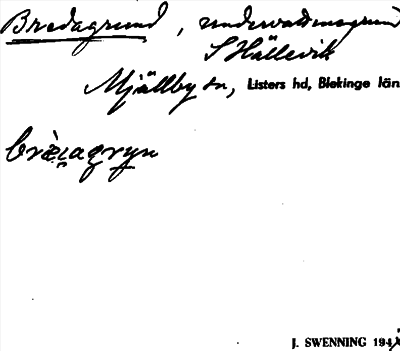 Bredagrund, undervattensgrund
S Hällevik
Mjällby sn, Listers hd, Blekinge län
J. SWENNING 194